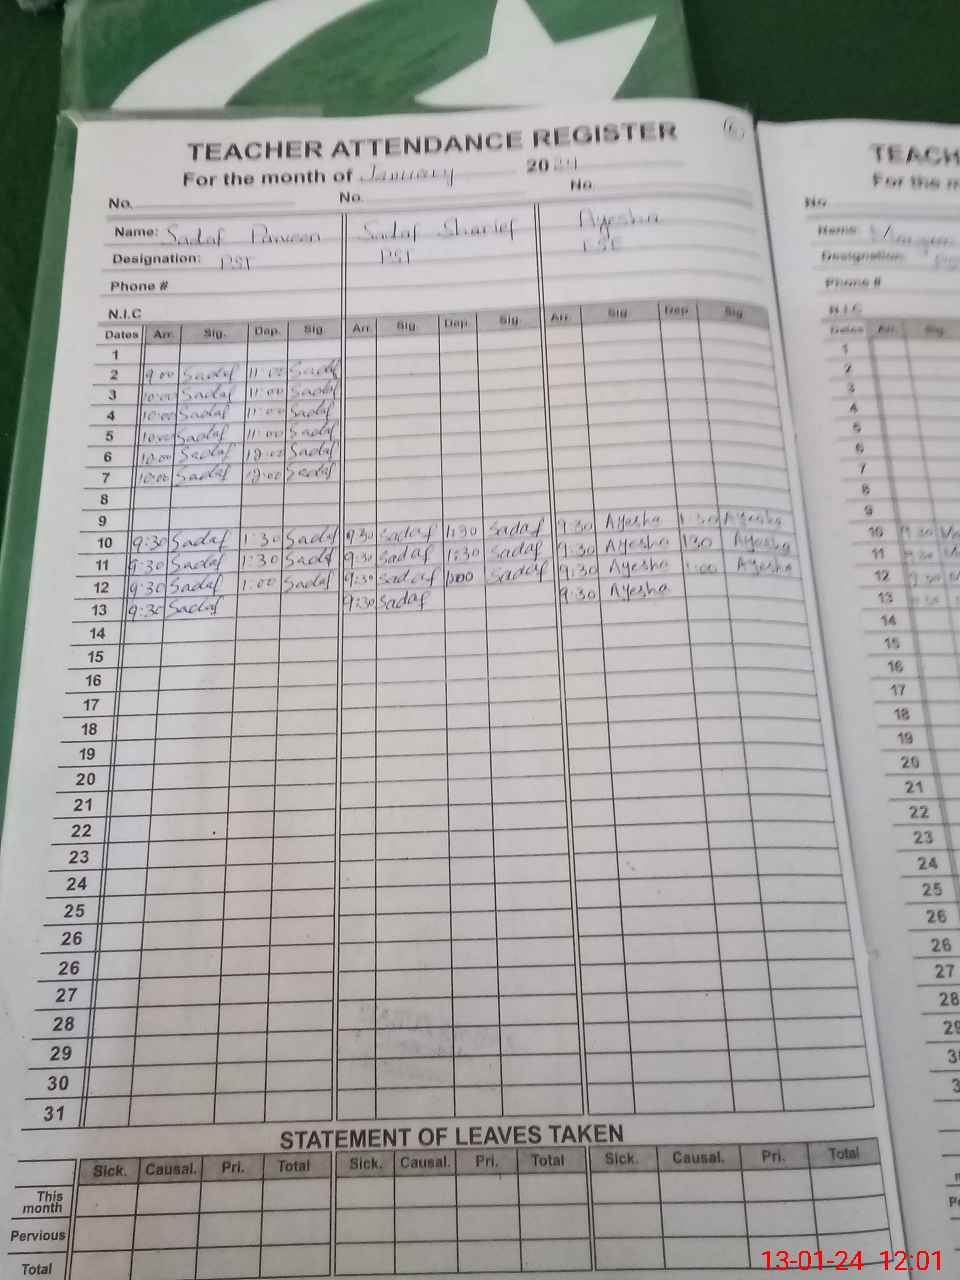 TEACHER ATTENDANCE REGISTER
For the month of January 2024
No. No. No.
Name: Sadaf Parveen Sadaf Sharief Ayesha
Designation: PST PST ESE
Phone #
N.I.C
Dates Arr. Sig. Dep. Sig. Arr. Sig. Dep. Sig Arr. Sig Dep Sig
1
2 9:00 Sadaf 11:00 Sadaf
3 10:00 Sadaf 11:00 Sadaf
4 10:00 Sadaf 11:00 Sadaf
5 10:00 Sadaf 11:00 Sadaf
6 10:00 Sadaf 12:00 Sadaf
7 10:00 Sadaf 12:00 Sadaf
8
9
10 9:30 Sadaf 1:30 Sadaf 9:30 Sadaf 1:30 Sadaf 9:30 Ayesha 1:30 Ayesha
11 9:30 Sadaf 1:30 Sadaf 9:30 Sadaf 1:30 Sadaf 9:30 Ayesha 1:30 Ayesha
12 9:30 Sadaf 1:00 Sadaf 9:30 Sadaf 1:00 Sadaf 9:30 Ayesha 1:00 Ayesha
13 9:30 Sadaf 9:30 Sadaf 9:30 Ayesha
14
15
16
17
18
19
20
21
22
23
24
25
26
26
27
28
29
30
31
STATEMENT OF LEAVES TAKEN
Sick. Causal. Pri. Total Sick. Causal. Pri. Total Sick. Causal. Pri. Total
This month
Pervious
Total
TEACH
For the m
No
Name:
Designation:
Phone #
N.I.C
Dates Arr. Sig.
1
2
3
4
5
6
7
8
9
10
11
12
13
14
15
16
17
18
19
20
21
22
23
24
25
26
26
27
28
29
13-01-24 12:01